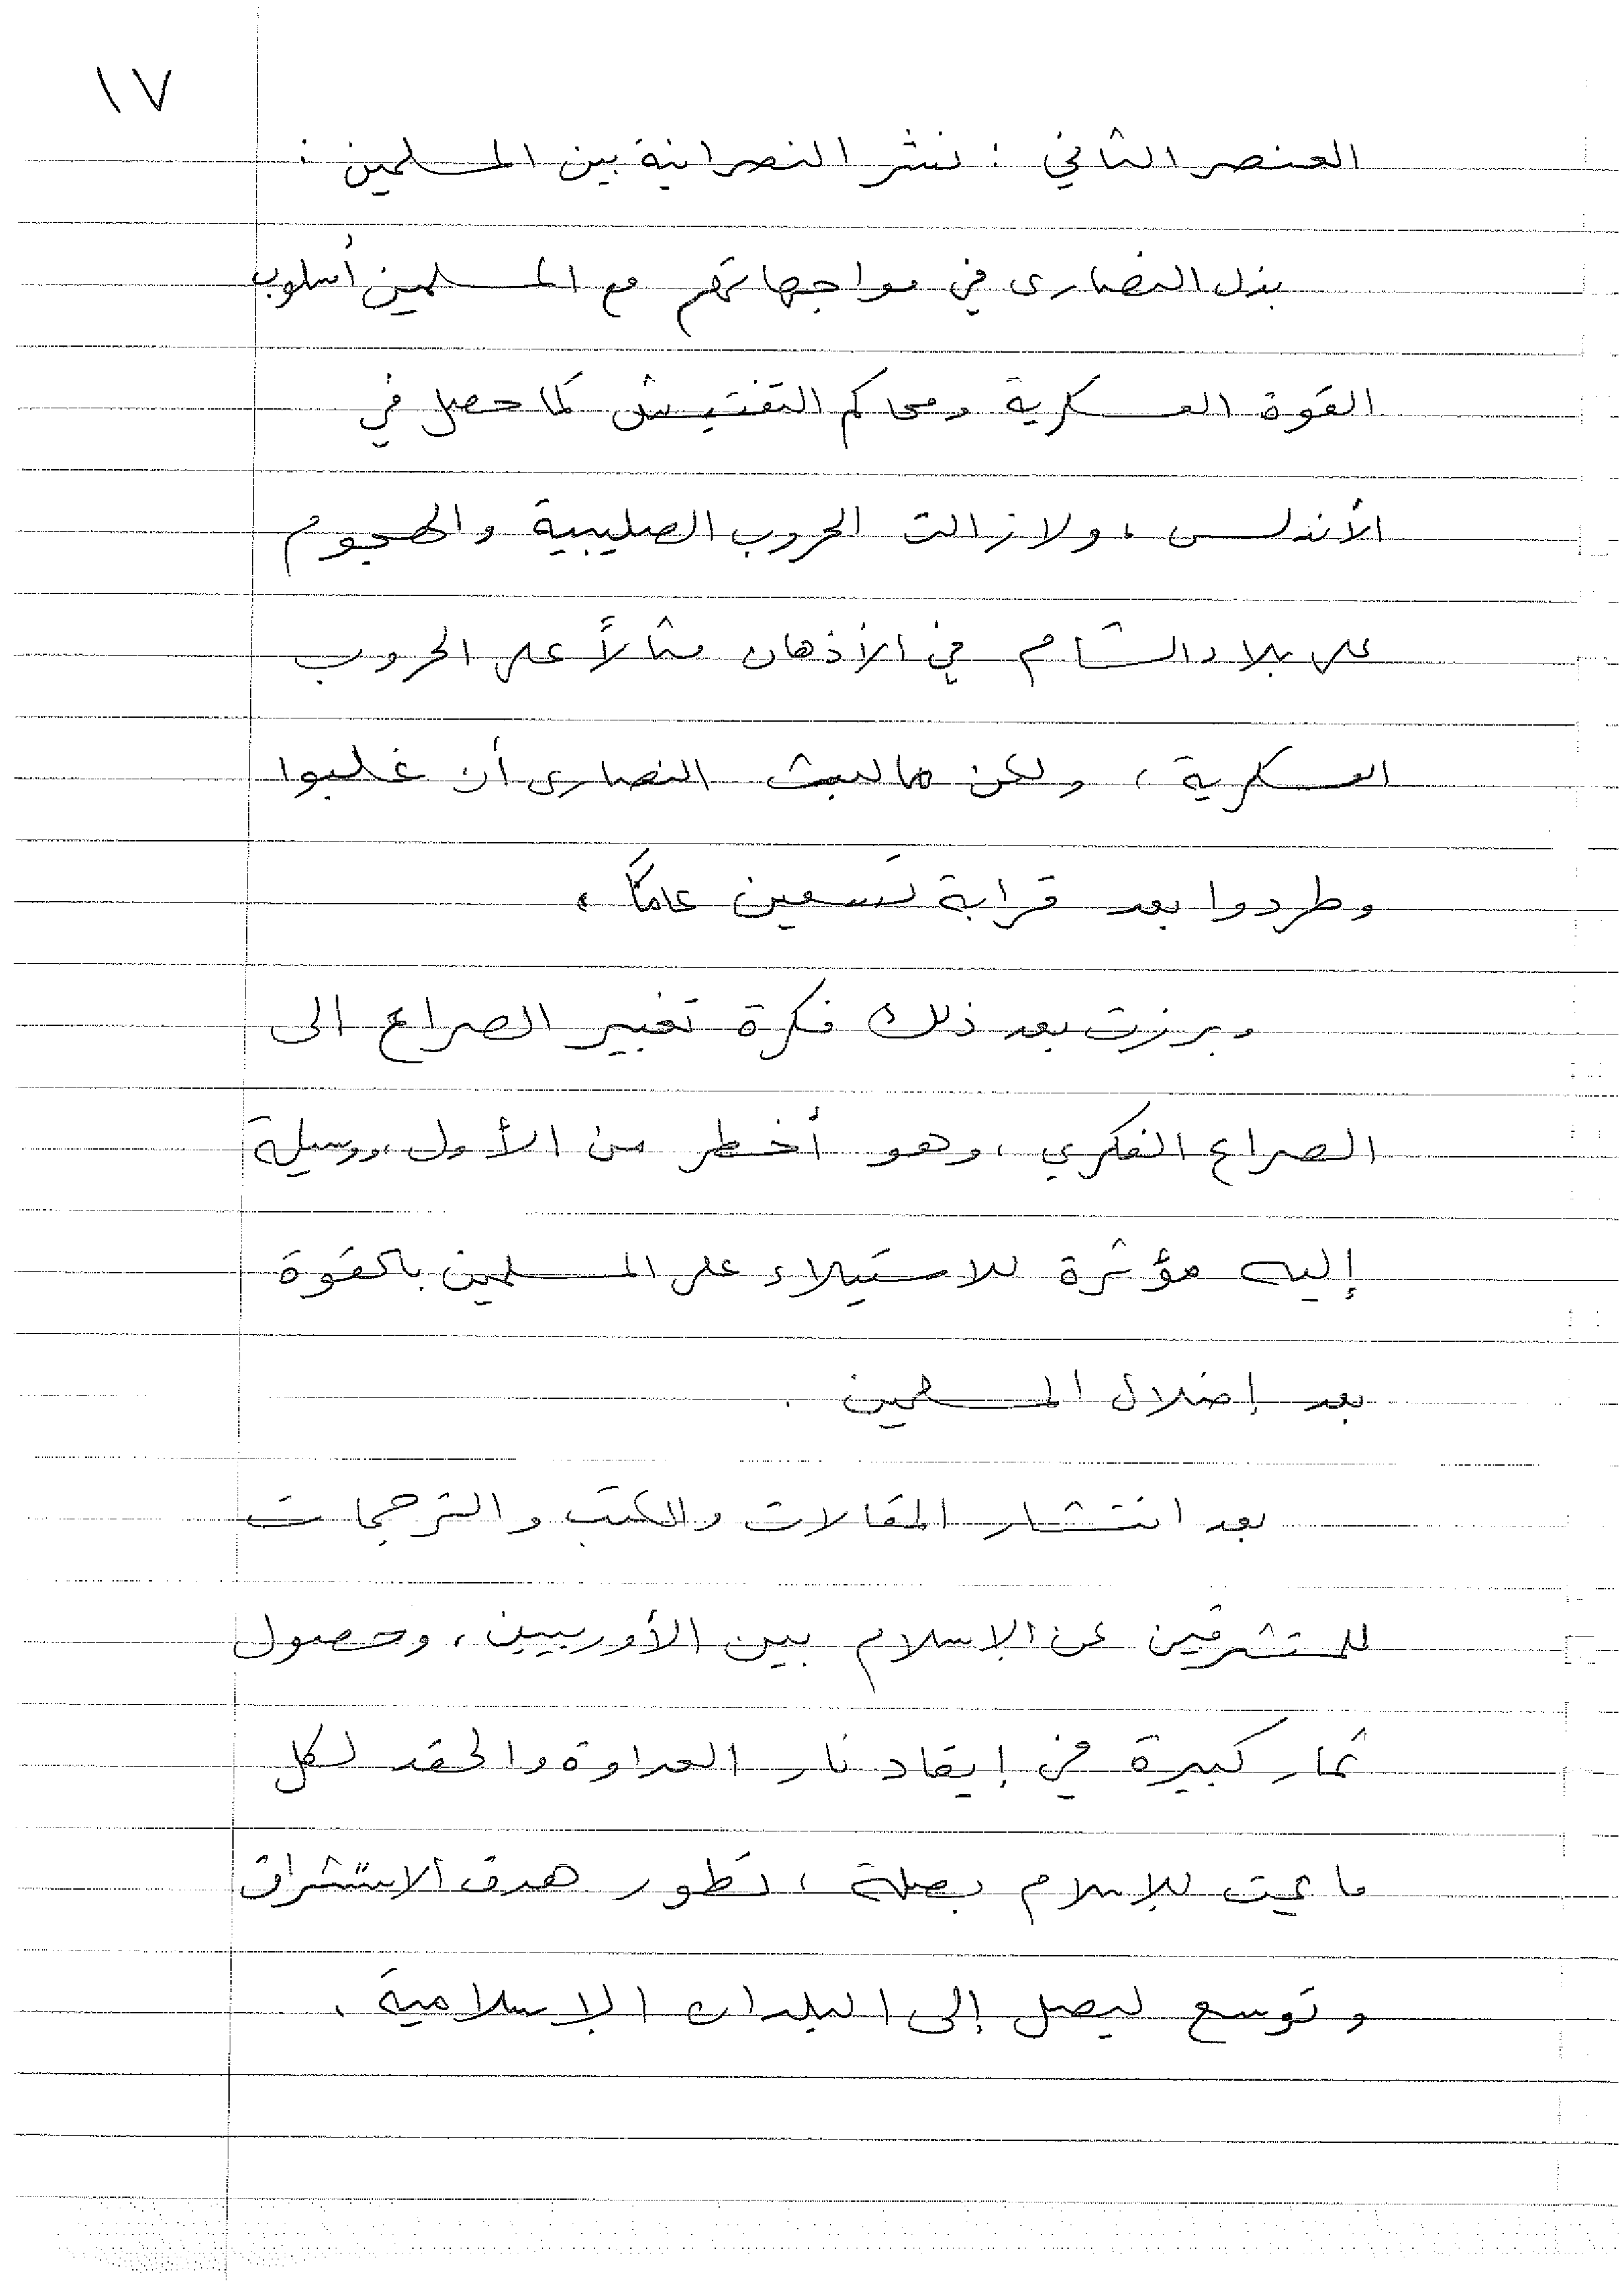 ١٧
العنصر الثاني : نشر النصرانية بين المسلمين :
بذل النصارى في مواجهاتهم مع المسلمين أسلوب
القوة العسكرية ومحاكم التفتيش كما حصل في
الأندلس ، ولازالت الحروب الصليبية والهجوم
على بلاد الشام في الأذهان مثالاً على الحروب
العسكرية ، ولكن مالبث النصارى أن غلبوا
وطردوا بعد قرابة تسعين عاماً ،
وبرزت بعد ذلك فكرة تغيير الصراع الى
الصراع الفكري ، وهو أخطر من الأول ، ووسيلة
إليه مؤثرة للاستيلاء على المسلمين بالقوة
بعد إضلال المسلمين .
بعد انتشار المقالات والكتب والترجمات
للمستشرقين عن الإسلام بين الأوربيين ، وحصول
ثمار كبيرة في إيقاد نار العداوة والحقد لكل
ما يمت للإسلام بصلة ، تطور هدف الاستشراق
وتوسع ليصل إلى البلدان الإسلامية .